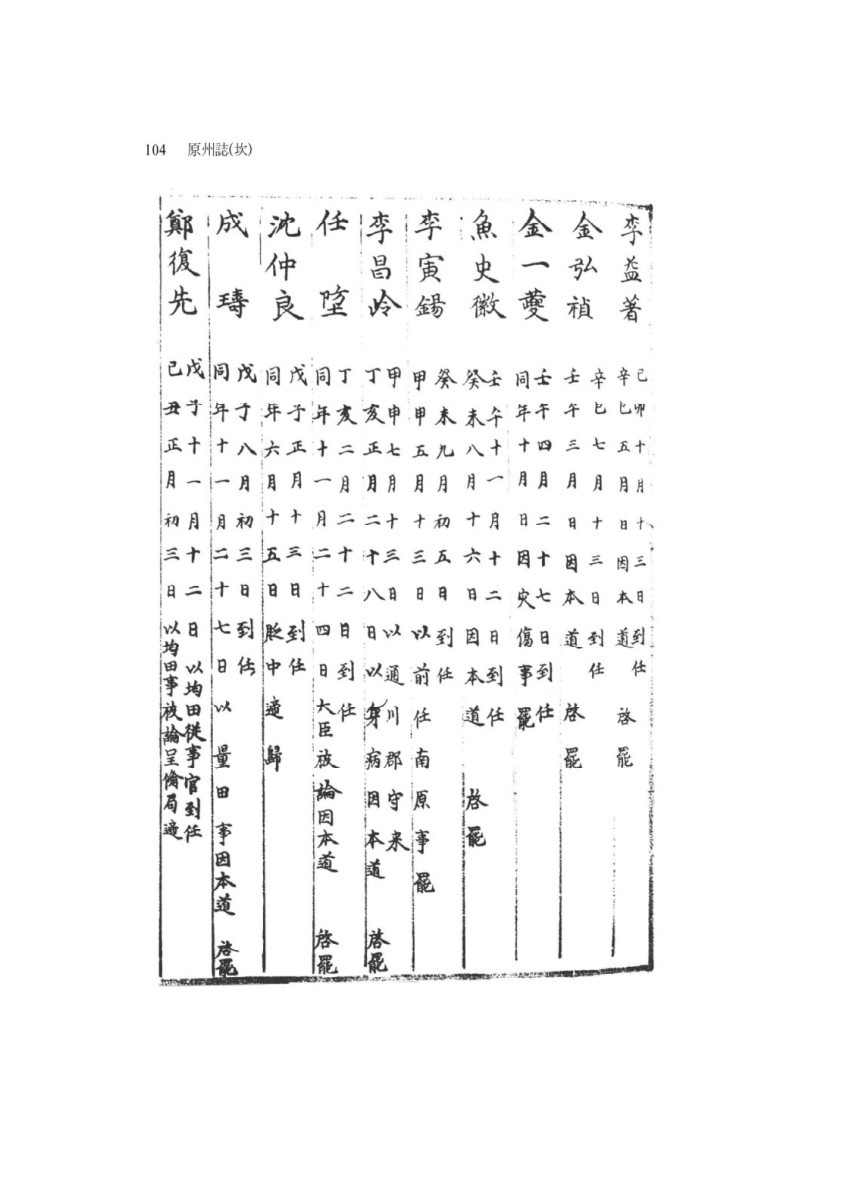 104 原州誌(坎)
李益著
己卯十月十三日到任
辛巳五月日因本道 啓罷
金弘禎
辛巳七月十三日到任
壬午三月日因本道 啓罷
金一夔
壬午四月二十七日到任
同年十月日因灾傷事罷
魚史徽
壬午十一月十二日到任
癸未八月十六日因本道 啓罷
李寅錫
癸未九月初五日到任
甲申五月十三日以前任南原事罷
李昌岭
甲申七月十三日以通川郡守来
丁亥正月二十八日以身病因本道 啓罷
任堕
丁亥二月二十二日到任
同年十一月二十四日大臣被論因本道 啓罷
沈仲良
戊子正月十三日到任
同年六月十五日貶中遞歸
成璹
戊子八月初三日到任
同年十一月二十七日以量田事因本道 啓罷
鄭復先
戊子十一月十二日以均田從事官到任
己丑正月初三日以均田事被論呈備局遞